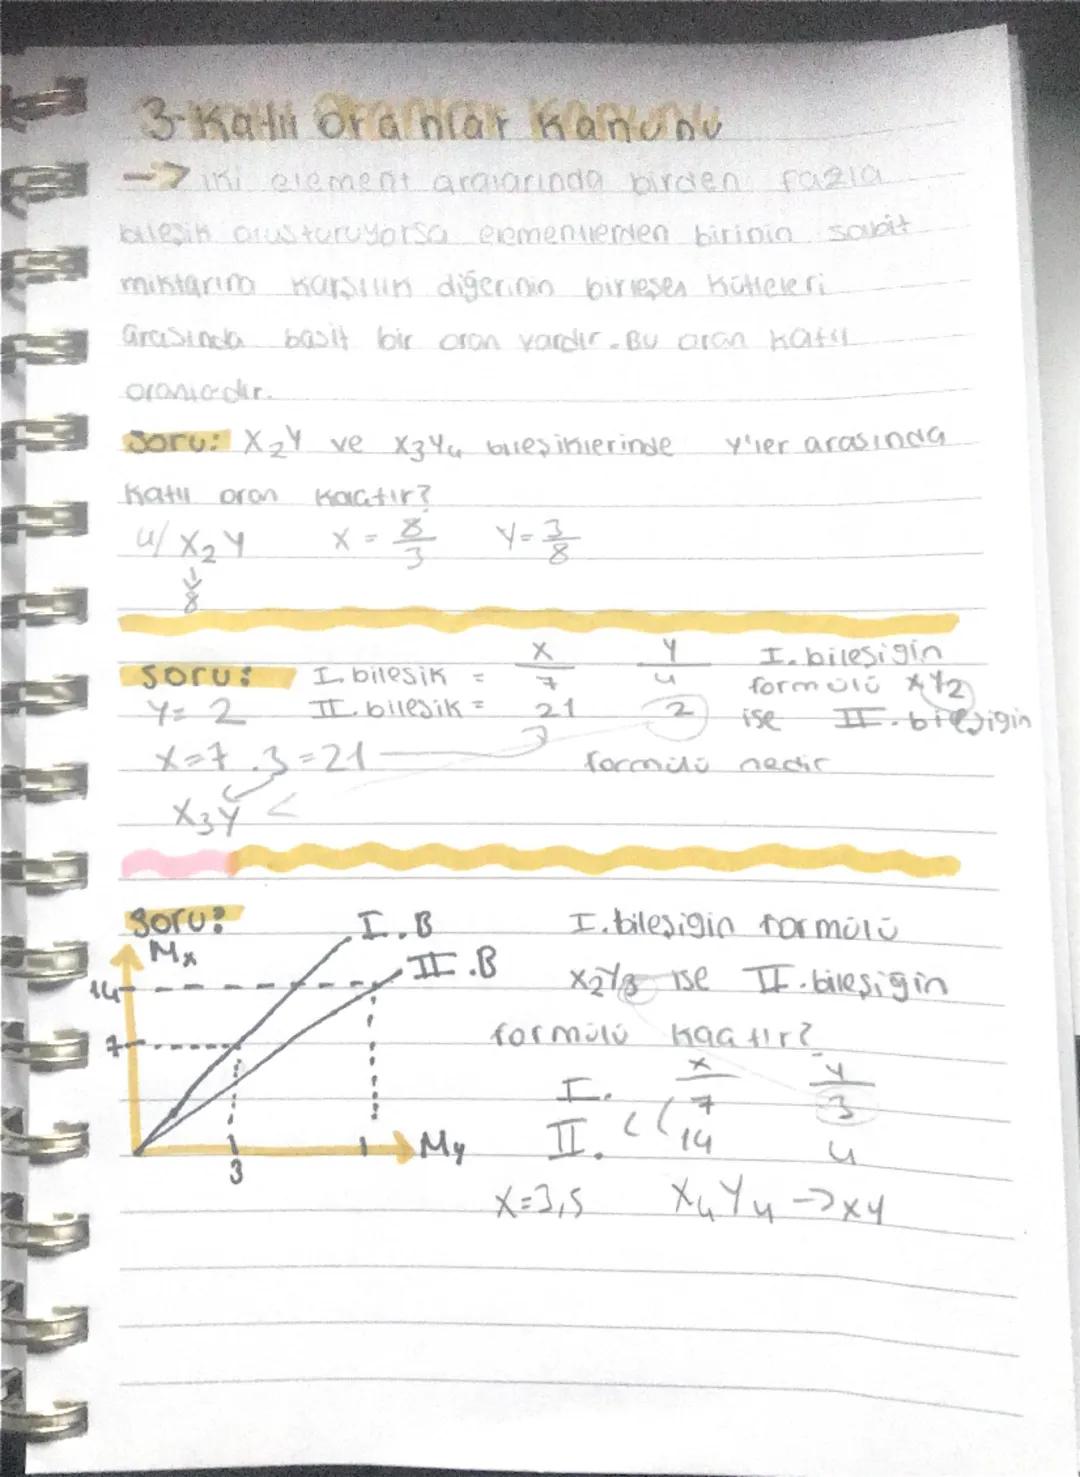 3-Katlı Oranlar Kanunu
→ iki element aralarında birden fazla
bileşik oluşturuyorsa elementlerden birinin sabit
miktarına karşılık diğerinin birleşen kütleleri
arasında basit bir oran vardır. Bu oran katlı
oranıdır.
Soru: X₂Y ve X₃Y₄ bileşiklerinde Y'ler arasında
katlı oran kaçtır?
4/ X₂Y X = 8/3 Y = 3/8
8
Soru: I. bileşik = X 7 Y 4 I. bileşiğin
formülü XY₂
Y = 2 II. bileşik = 21 2 ise II. bileşiğin
X = 7 . 3 = 21 formülü nedir
X₃Y
Soru: I.B I. bileşiğin formülü
Mx II.B
14 X₂Y₃ ise II. bileşiğin
7 formülü kaçtır?
X Y
I. 7 3
II. 14 4
My
3
X = 3,5 X₄Y₄ → XY